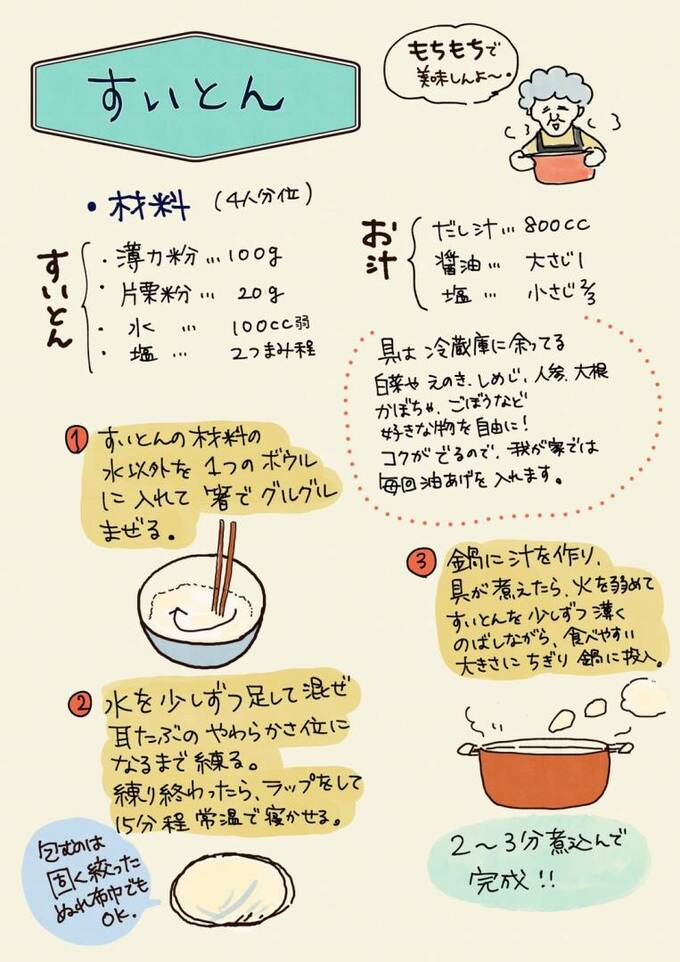 すいとん
もちもちで
美味しんよ〜。
・材料 (4人分位)
すいとん
・薄力粉… 100g
・片栗粉… 20g
・水 … 100cc弱
・塩 … 2つまみ程
お汁
だし汁… 800cc
醤油… 大さじ1
塩… 小さじ2/3
具は 冷蔵庫に余ってる
白菜や えのき、しめじ、人参、大根
かぼちゃ、ごぼうなど
好きな物を自由に!
コクがでるので、我が家では
毎回油あげを入れます。
1 すいとんの材料の
水以外を 1つのボウル
に入れて 箸でグルグル
まぜる。
2 水を少しずつ足して混ぜ
耳たぶの やわらかさ位に
なるまで練る。
練り終わったら、ラップをして
15分程 常温で寝かせる。
包むのは
固く絞った
ぬれ布巾でも
OK.
3 鍋に汁を作り、
具が煮えたら、火を弱めて
すいとんを少しずつ薄く
のばしながら、食べやすい
大きさに ちぎり 鍋に投入。
2〜3分煮込んで
完成!!